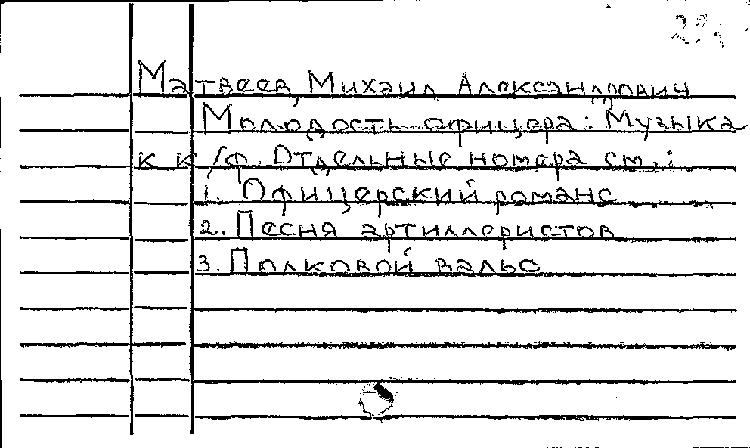 Матвеев, Михаил Александрович
Молодость офицера: Музыка
к к/ф. Отдельные номера см.:
1. Офицерский романс
2. Песня артиллеристов
3. Полковой вальс